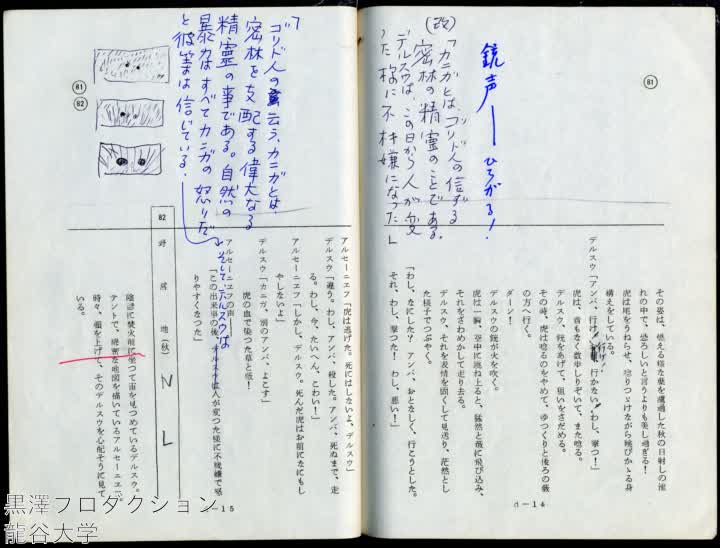 81
銃声――ひろがる！
(改)
「カニガとは、ゴリド人の信ずる
密林の精霊のことである。
デルスウは、この日から人が変
った様に不機嫌になった」
その姿は、燃える様な葉を濾過した秋の日射しの流
れの中で、恐ろしいと言うよりも美し過ぎる！
虎は尾をうねらせ、唸りつゞけながら跳びかゝる身
構えをしている。
デルスウ「アンバ、行け！ 行かない、わし、撃つ！」
虎は、首もなく数歩しりぞいて、また唸る。
デルスウ、銃をあげて、狙いをさだめる。
その時、虎は唸るのをやめて、ゆつくりと後ろの藪
の方へ行く。
ダーン！
デルスウの銃が火を吹く。
虎は一瞬、空中に跳ね上ると、猛然と藪に飛び込み、
それをざわめかして走り去る。
デルスウ、それを表情を固くして見送り、茫然とし
た様子でつぶやく。
「わし、なにした？ アンバ、おとなしく、行こうとした。
それ、わし、撃つた！ わし、悪い！」
d－14
「ゴリド人の云う、カニガとは、
密林を支配する偉大なる
精霊の事である。自然の
暴力はすべてカニガの怒りだ
と彼等は信じている。
そしてデルスウは
81
82
アルセーニエフ「虎は逃げた。死にはしないよ、デルスウ」
デルスウ「違う。わし、アンバ、殺した。アンバ、死ぬまで、走
る。わし、今、たいへん、こわい！」
アルセーニエフ「しかし、デルスウ。死んだ虎はお前になにもし
やしないよ」
デルスウ「カニガ、別のアンバ、よこす」
虎の血で染つた草と低！
アルセーニエフの声――
「この出来事の後、デルスウは人が変つた様に不機嫌で怒
りやすくなつた」
82 野営地（秋）
N
L
陰鬱に焚火の前に坐つて宙をみつめているデルスウ。
テントで、綿密な地図を描いているアルセーニエフ。
時々、顔を上げて、そのデルスウを心配そうに見て
いる。
－15
黒澤プロダクション
龍谷大学